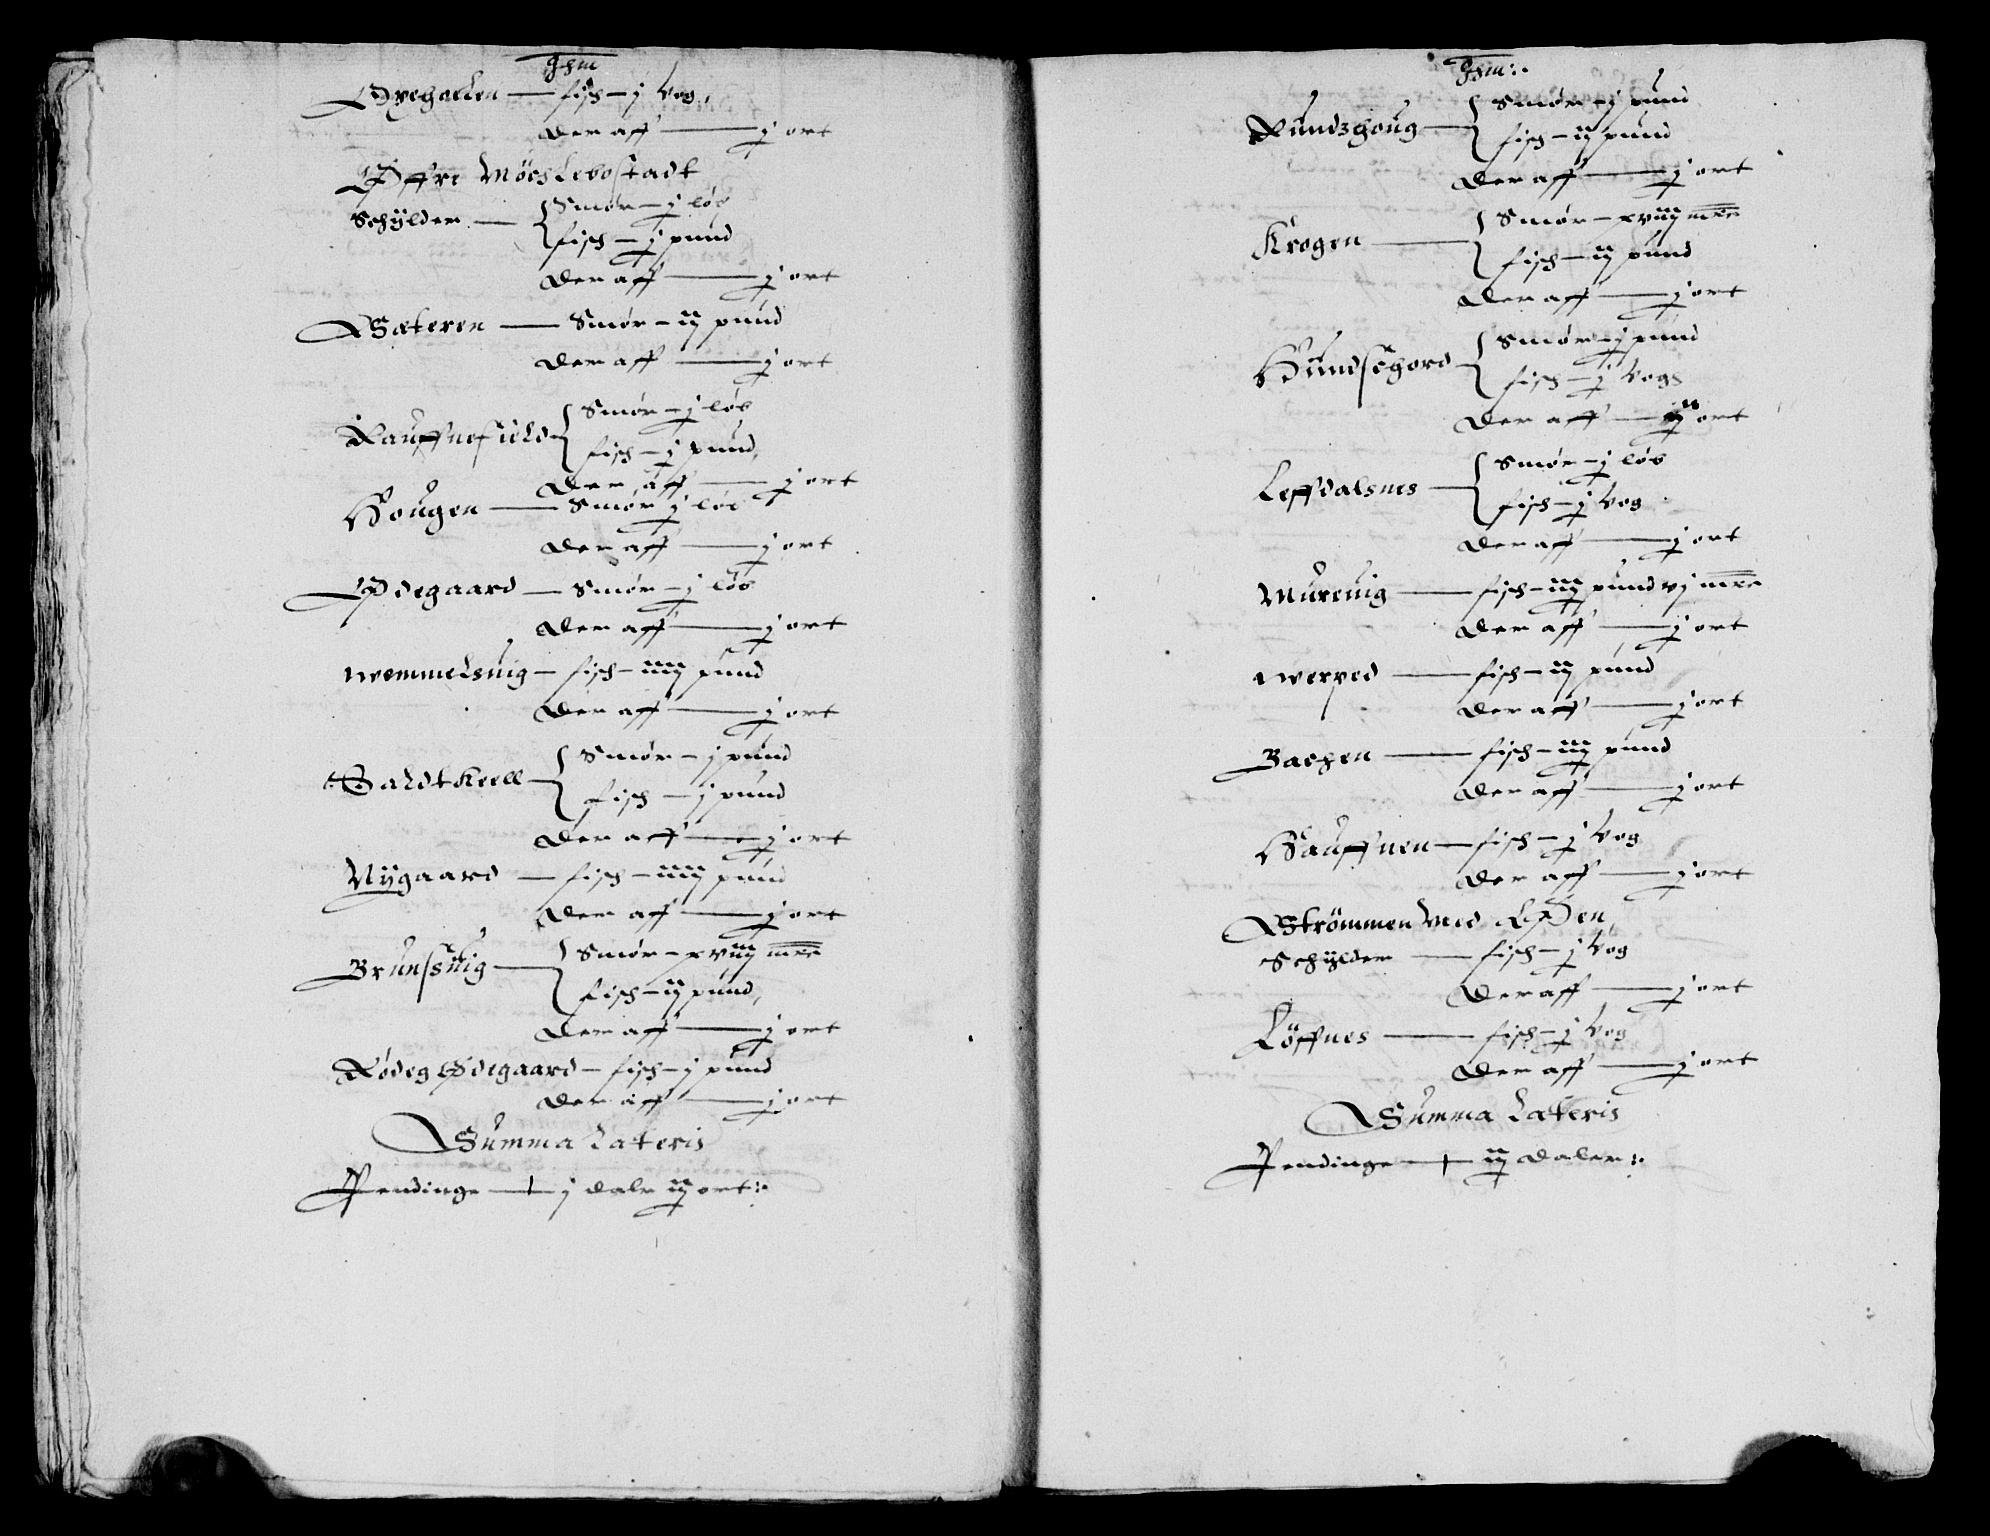 Ihm
Øregallen — fisch – j vog,
der aff — j ort
Øffre Möchlebostadt
Schÿlder — Smør – j løb
fisch – j pund
der aff — j ort
Sæteren — Smør – ij pund
der aff — j ort
Rauffnefield Smør – j løb
fisch – j pund,
der aff — j ort
Hougen — Smør j løb
der aff — j ort
Ødegaard — Smør – j løb
der aff — j ort
Wemmelsuig – fisch – iiij pund
der aff — j ort
Saldtkeell – Smør – j pund
fisch – j pund
der aff — j ort
Nÿgaard — fisch – iiij pund
der aff — j ort
Brunssuig — Smør – xviij mrc
fisch – ij pund,
der aff — j ort
Rødeg Ødegaard – fisch – j pund
der aff — j ort
Summa Lateris
Pendinge — j dalr iij ort :/:
Ihm :/:
Rundzhoug — Smør – j pund
fisch – ij pund
der aff — j ort
Krogen — Smør – xviij mrc
fisch – ij pund
der aff — j ort
Hundschord – Smør – j pund
fisch – j vog
der aff — ij ort
Leffdalsnes — Smør – j løb
fisch – j vog
der aff — j ort
Mureuig — fisch – iij pund vj mrc
der aff — j ort
Werped — fisch – ij pund
der aff — j ort
Bachen — fisch – iij pund
der aff — j ort
Hauffnen – fisch – j vog
der aff — j ort
Strömmen med Øen
Schÿlder — fisch – j vog
der aff — j ort
Löffnes — fisch – j vog
der aff — j ort
Summa Lateris
Pendinge — iij daler :/: